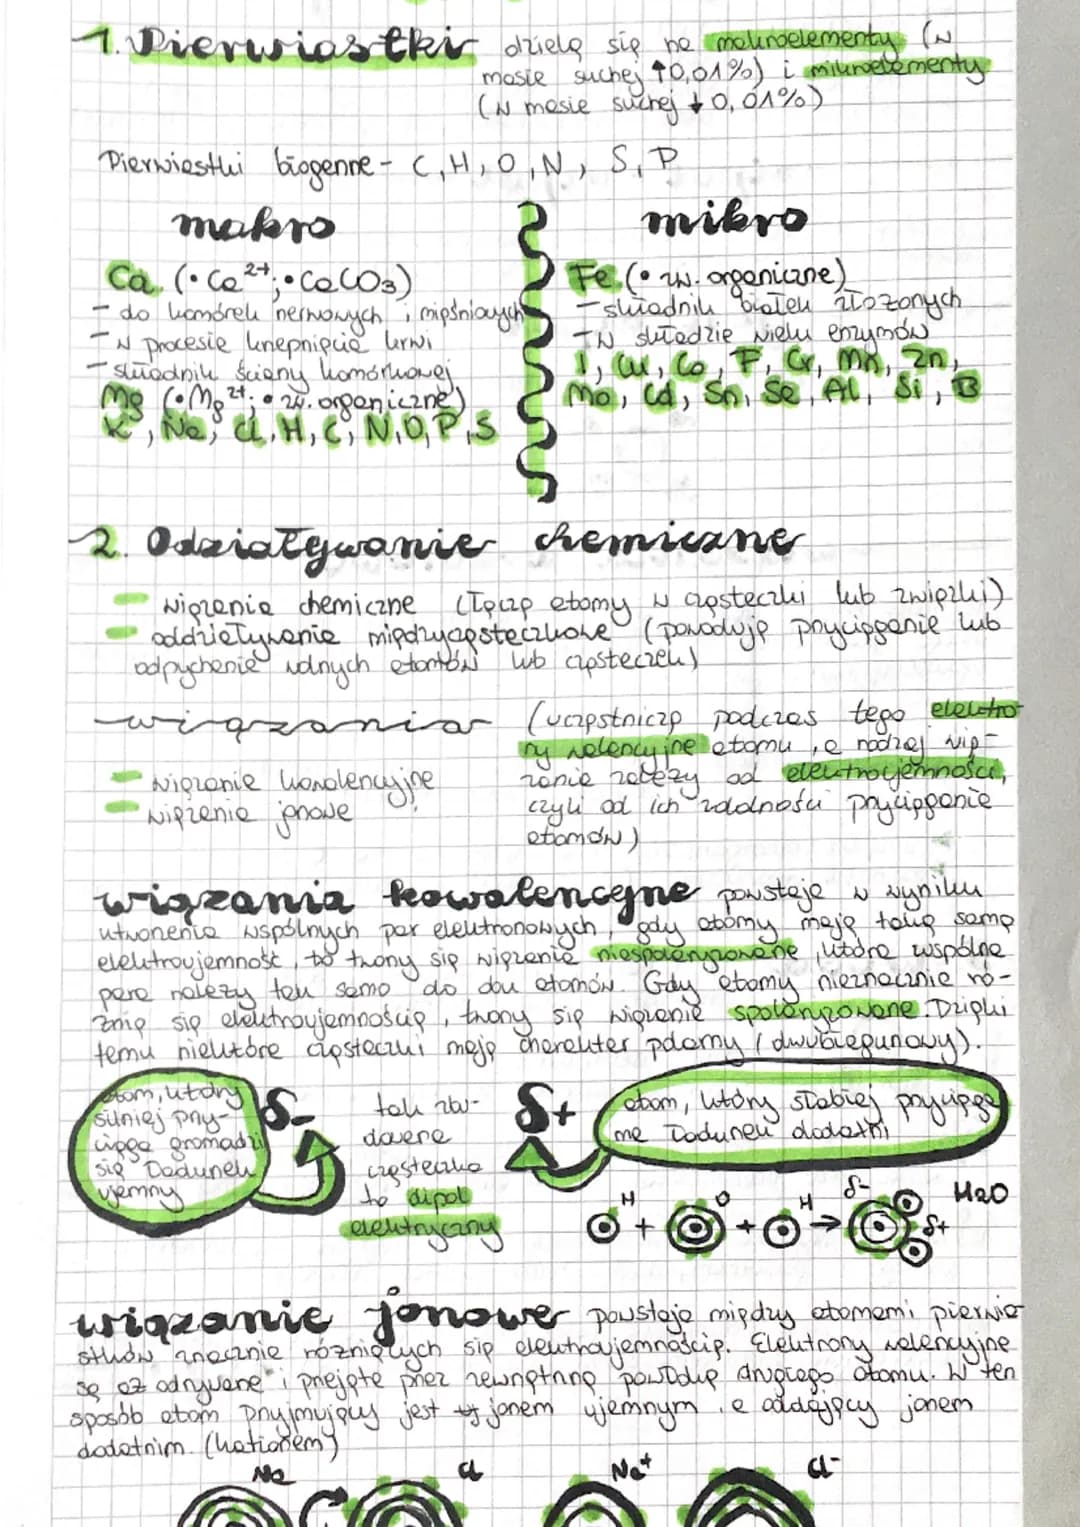 1. Pierwiastki dzielą się na makroelementy (w
masie suchej ↑0,01%) i mikroelementy
(w masie suchej ↓0,01%)
Pierwiastki biogenne - C, H, O, N, S, P
makro
Ca (•Ca²⁺; •CaCO₃)
- do komórek nerwowych i mięśniowych
- w procesie krzepnięcia krwi
- składnik ściany komórkowej
Mg (•Mg²⁺; • zw. organiczne)
K, Na, Cl, H, C, N, O, P, S
mikro
Fe (• zw. organiczne)
- składnik białek złożonych
- w składzie wielu enzymów
I, Cu, Co, F, Cr, Mn, Zn,
Mo, Cd, Sn, Se, Al, Si, B
2. Odziaływanie chemiczne
- wiązania chemiczne (łączą atomy w cząsteczki lub związki)
- oddziaływania międzycząsteczkowe (powodują przyciąganie lub
odpychanie wolnych atomów lub cząsteczek)
wiązania (uczestniczą podczas tego elektro
ny walencyjne atomu, a rodzaj wią-
zania zależy od elektroujemności,
czyli od ich zdolności przyciągania
atomów)
- wiązanie kowalencyjne
- wiązanie jonowe
wiązania kowalencyjne powstaje w wyniku
utworzenia wspólnych par elektronowych, gdy atomy mają taką samą
elektroujemność, to tworzy się wiązanie niespolaryzowane, które wspólna
para należy tak samo do dwu atomów. Gdy atomy nieznacznie ró-
żnią się elektroujemnością, tworzy się wiązanie spolaryzowane. Dzięki
temu niektóre cząsteczki mają charakter polarny (dwubiegunowy).
atom, który
silniej przy-
ciąga gromadzi
się ładunek
ujemny
δ-
tak zbu-
dowana
cząsteczka
to dipol
elektryczny
δ+
atom, który słabiej przyciąga
ma ładunek dodatni
H + O + H → δ- δ+ H2O
wiązanie jonowe powstaje między atomami pierwia
stków znacznie różniących się elektroujemnością. Elektrony walencyjne
są aż odrywane i przejęte przez zewnętrzną powłokę drugiego atomu. W ten
sposób atom przyjmujący jest jonem ujemnym, a oddający jonem
dodatnim. (kationem)
Na Cl Na⁺ Cl⁻